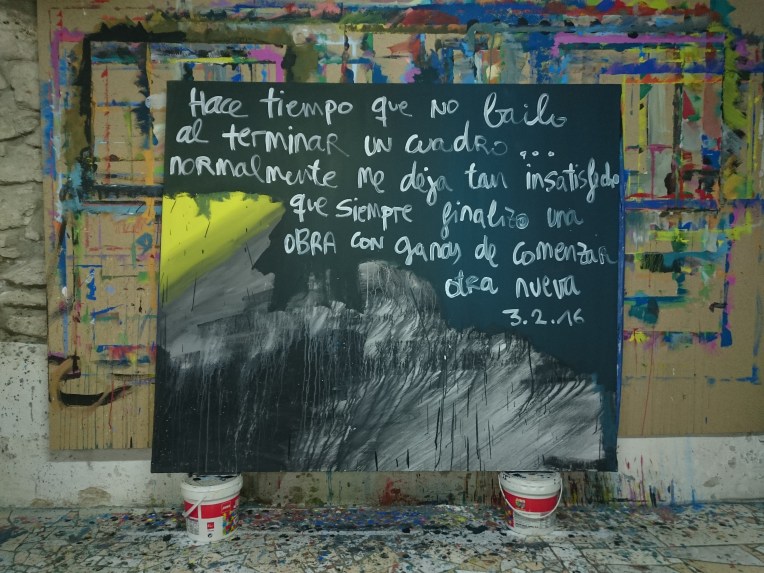 Hace tiempo que no bailo
al terminar un cuadro...
normalmente me deja tan insatisfecho
que siempre finalizo una
OBRA con ganas de comenzar
otra nueva
3.2.16